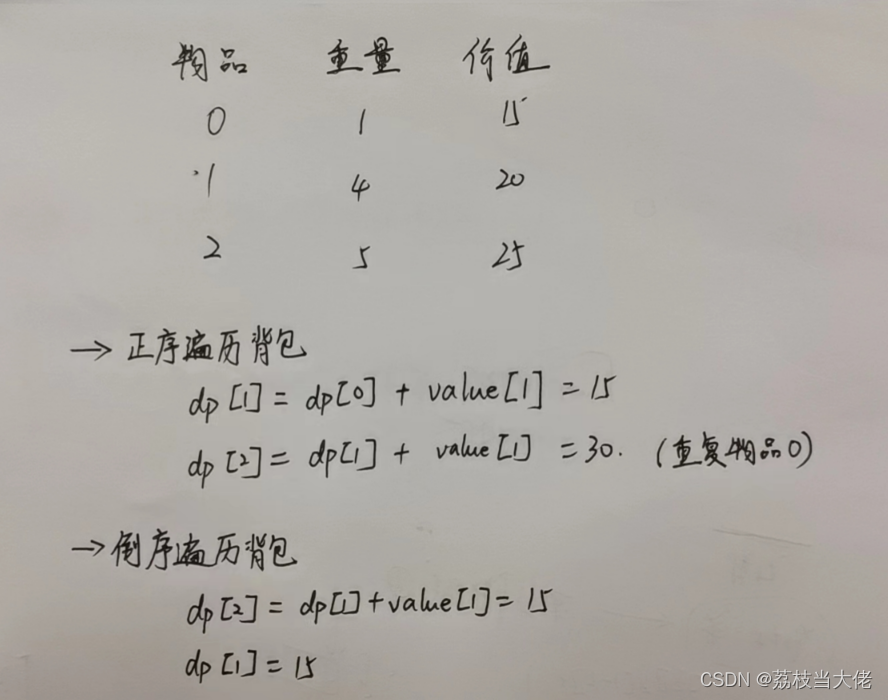 物品 重量 价值
0 1 15
1 4 20
2 5 25
→ 正序遍历背包
dp[1] = dp[0] + value[1] = 15
dp[2] = dp[1] + value[1] = 30. (重复物品0)
→ 倒序遍历背包
dp[2] = dp[1] + value[1] = 15
dp[1] = 15
CSDN @荔枝当大佬